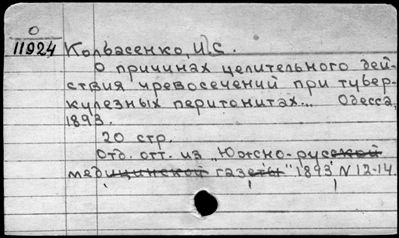 0
11924 Колбасенко, И.С.
О причинах целительного дей-
ствия чревосечений при тубер-
кулезных перитонитах... Одесса,
1893.
20 стр.
Отд. отт. из „Южно-русской
медицинской газеты" 1893 N 12-14.